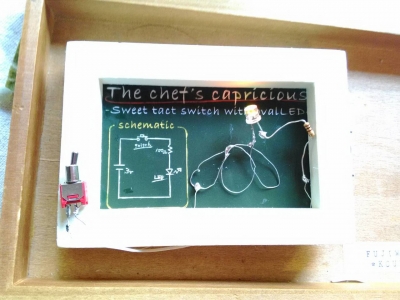 The chef's capricious
Sweet tact switch with ovalLED
schematic
switch
100Ω
3v
LED